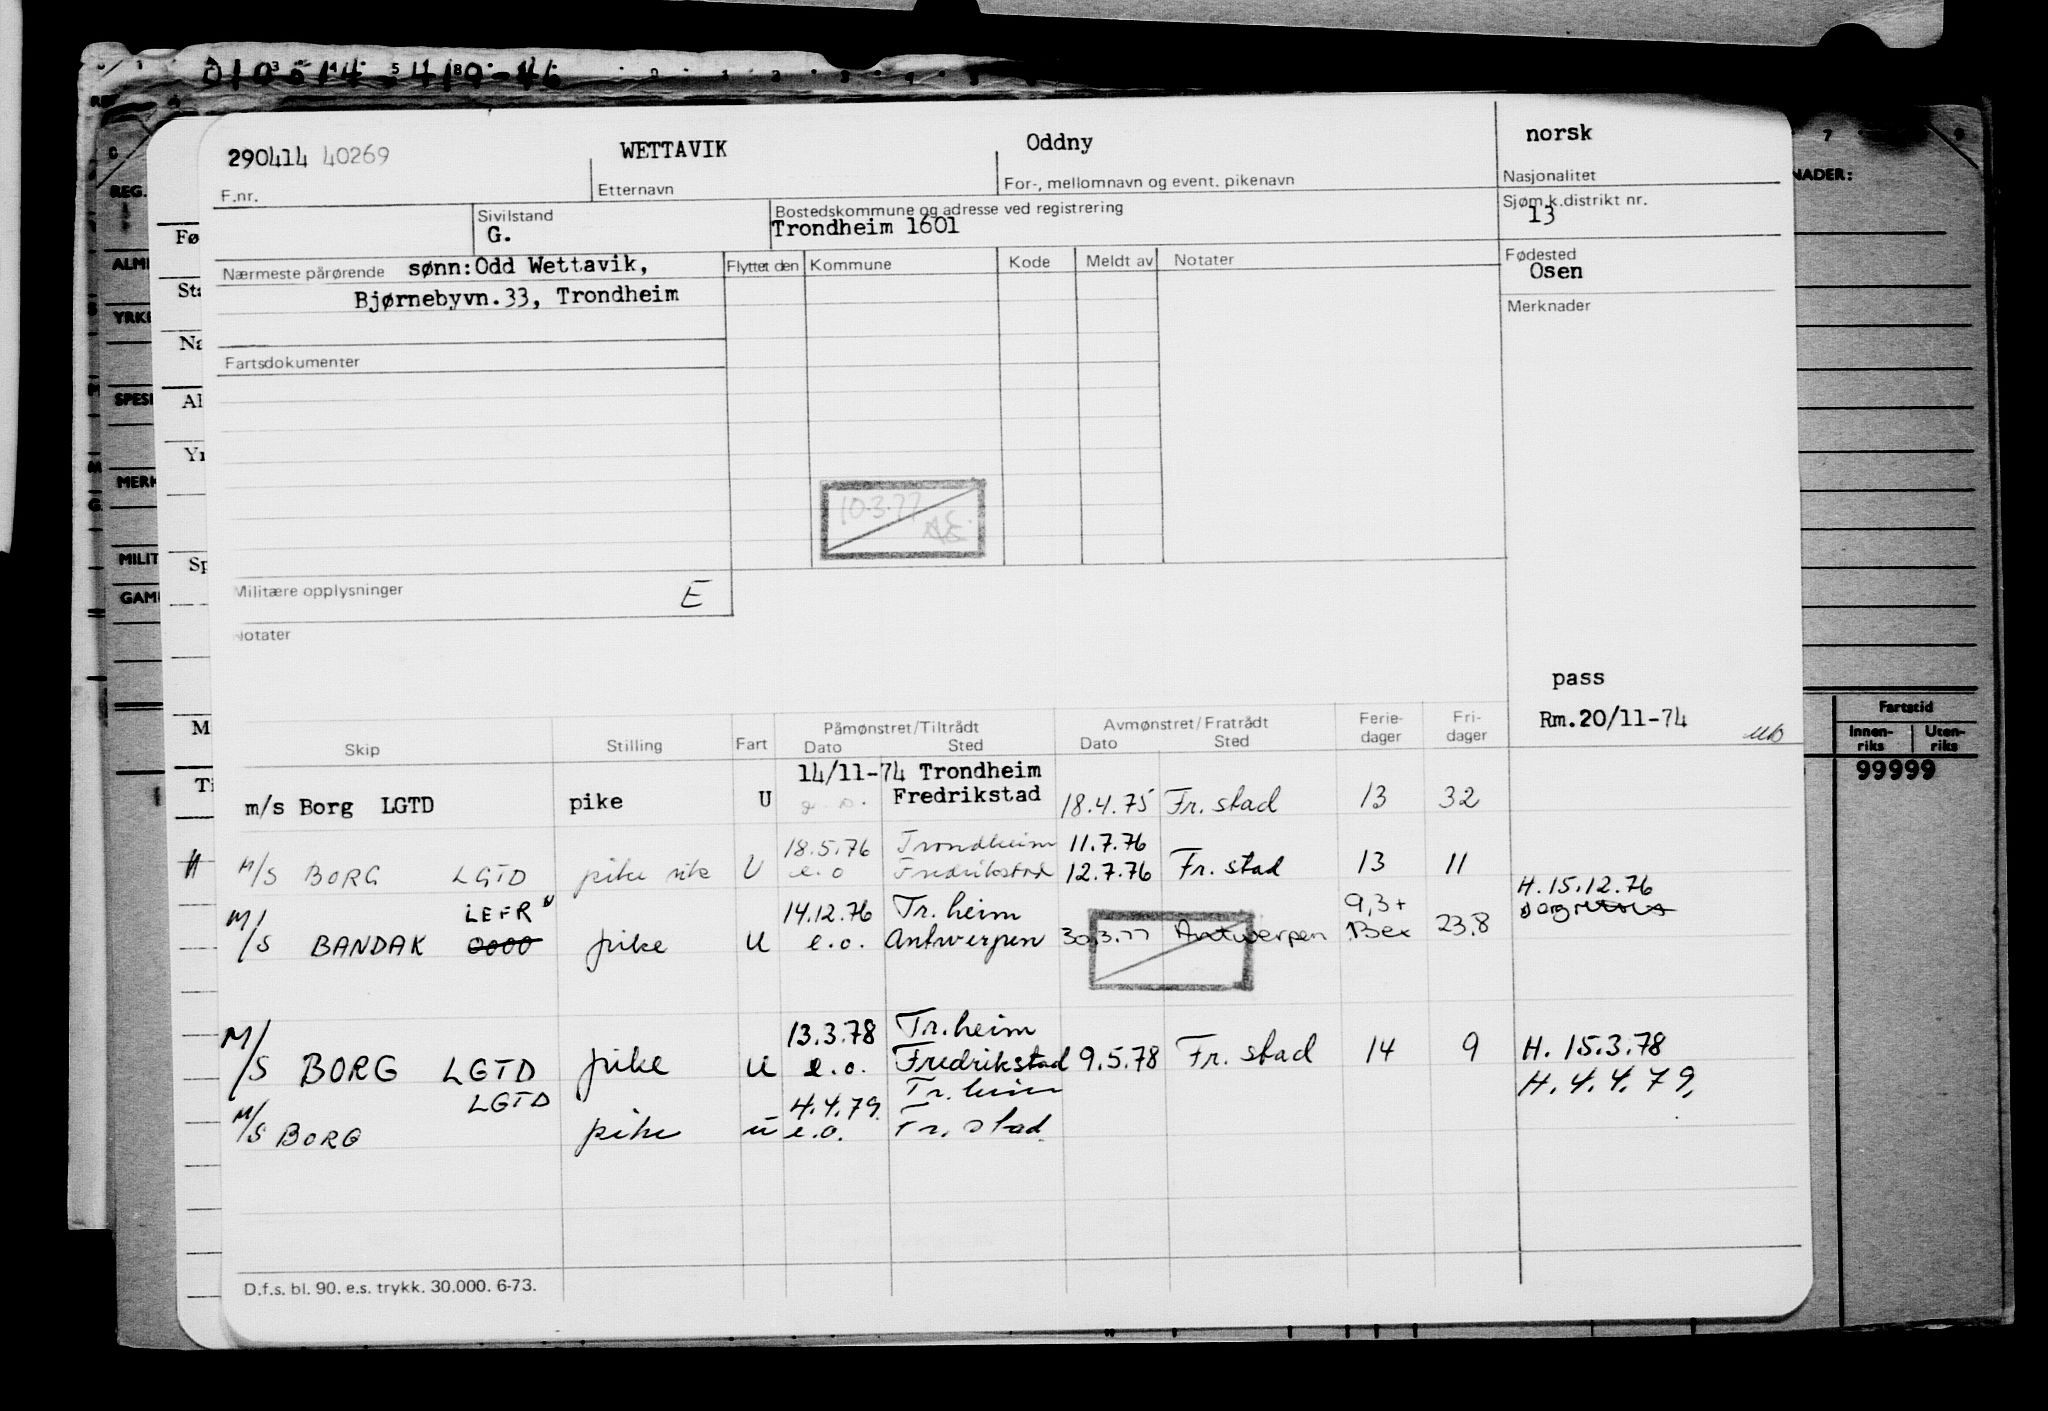 290414 40269 WETTAVIK Oddny norsk
F.nr. Etternavn For-, mellomnavn og event. pikenavn Nasjonalitet
Sivilstand Bostedskommune og adresse ved registrering Sjøm.k.distrikt nr.
G. Trondheim 1601 13
Nærmeste pårørende sønn:Odd Wettavik, Flyttet den Kommune Kode Meldt av Notater Fødested
Osen
Bjørnebyvn.33, Trondheim Merknader
Fartsdokumenter
10.3.77
Militære opplysninger E
Notater
pass
Rm.20/11-74
Påmønstret/Tiltrådt Avmønstret/Fratrådt Ferie- Fri-
Skip Stilling Fart Dato Sted Dato Sted dager dager
14/11-74 Trondheim
m/s Borg LGTD pike U Fredrikstad 18.4.75 Fr. stad 13 32
18.5.76 Trondheim 11.7.76
M/S BORG LGTD pike U e.o Fredrikstad 12.7.76 Fr. stad 13 11
H. 15.12.76
LEFR 14.12.76 Tr. heim 9,3+
M/S BANDAK pike U e.o. Antwerpen 30.3.77 Antwerpen Bex 23,8
13.3.78 Tr. heim
M/S BORG LGTD pike U e.o. Fredrikstad 9.5.78 Fr. stad 14 9 H. 15.3.78
LGTD 4.4.79. Tr. heim H. 4.4.79.
M/S BORG pike u e.o. Fr. stad.
D.f.s. bl. 90. e.s. trykk. 30.000. 6-73.
REG.
ALM
YRKE
SPESI
MERK
MILIT
GAM
Fø
Sta
Na
Al
Yr
Sp
M
Ti
NADER:
Fartstid
Innen- Uten-
riks riks
99999